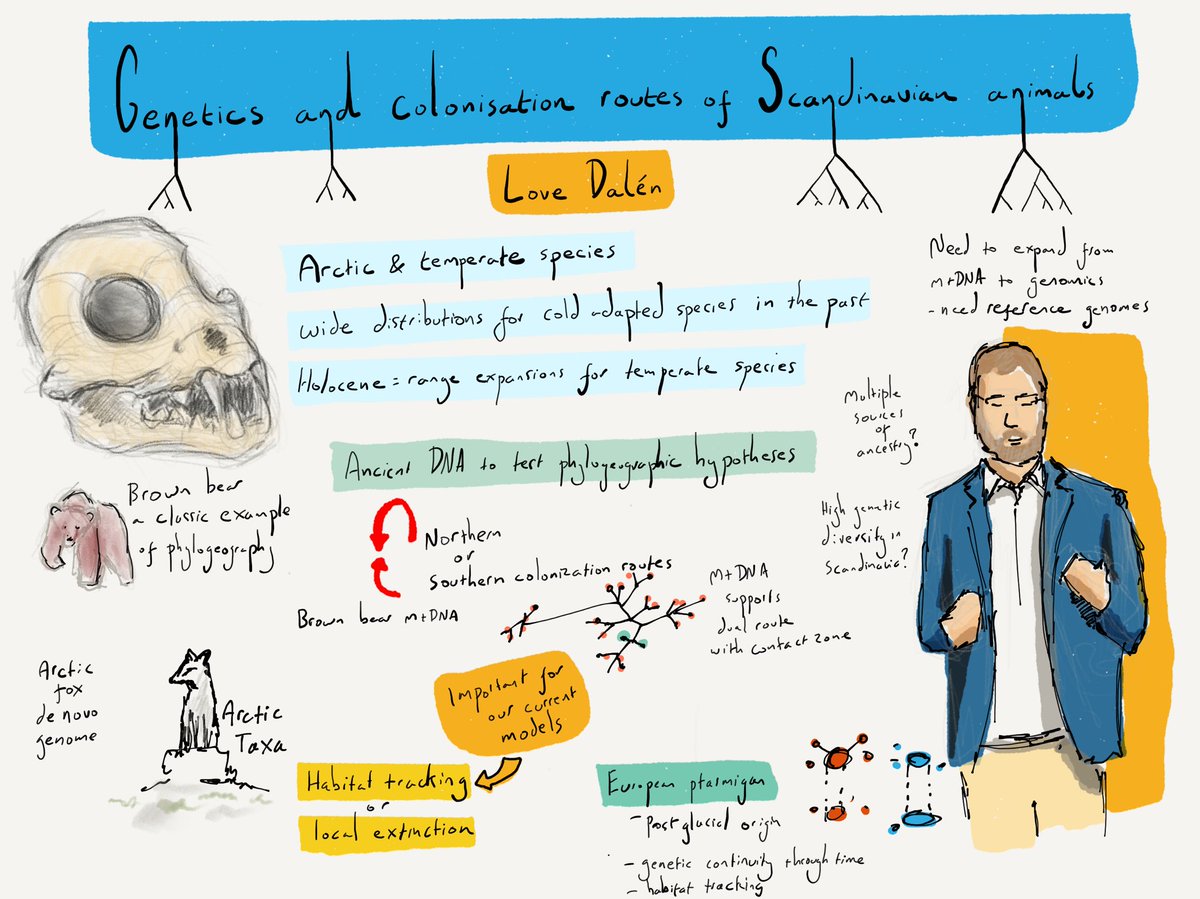 Genetics and colonisation routes of Scandinavian animals
Love Dalén
Arctic & temperate species
wide distributions for cold adapted species in the past
Holocene = range expansions for temperate species
Need to expand from
mtDNA to genomics
- need reference genomes
Multiple
sources
of
ancestry?
Ancient DNA to test phylogeographic hypotheses
Brown bear
a classic example
of phylogeography
Northern
or
Southern colonization routes
Brown bear mtDNA
High genetic
diversity in
Scandinavia?
mtDNA
supports
dual route
with contact zone
Arctic
fox
de novo
genome
Arctic
Taxa
Important for
our current
models
Habitat tracking
or
local extinction
European ptarmigan
- Post glacial origin
- genetic continuity through time
- habitat tracking